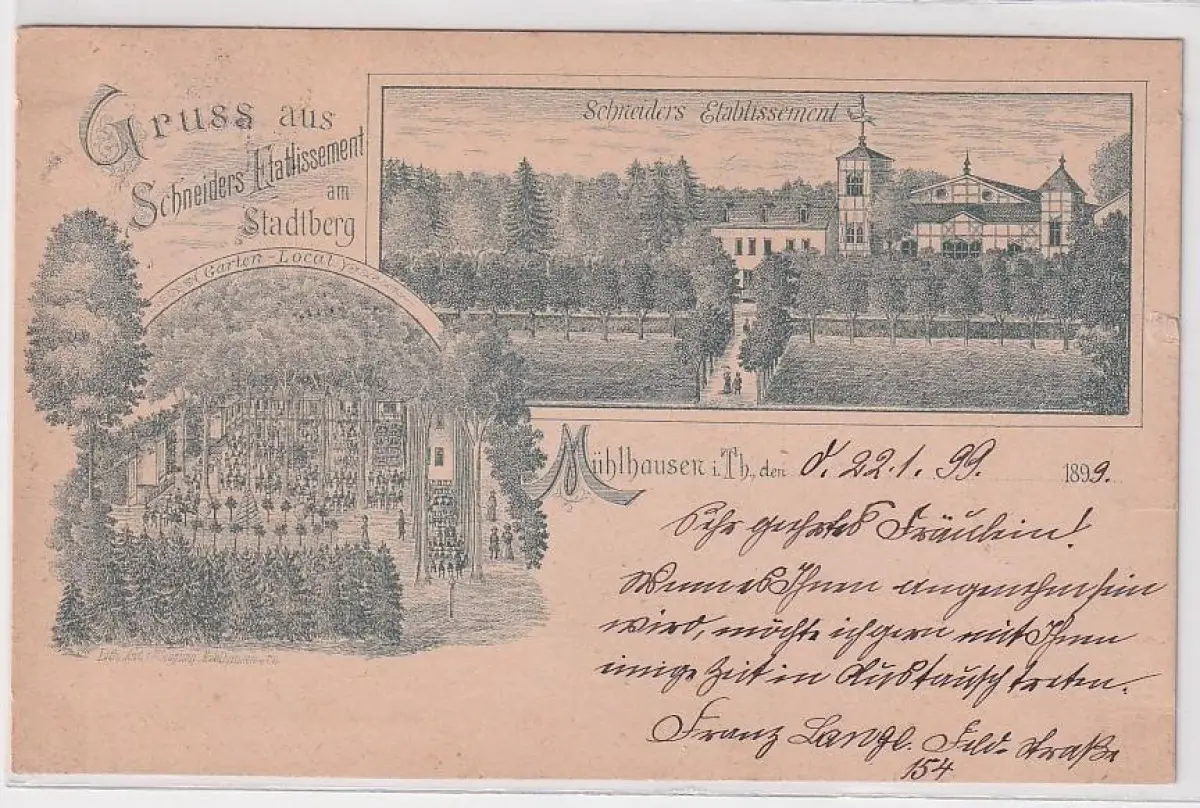 Gruss aus
Schneiders Etablissement
am
Stadtberg
Garten-Local
Schneiders Etablissement
Mühlhausen i. Th., den d. 22.1.99. 1899.
Sehr geehrtes Fräulein!
Wenn es Ihnen angenehm sein
wird, möchte ich gern mit Ihnen
einige Zeit in Austausch treten.
Franz Feld-Straße
154